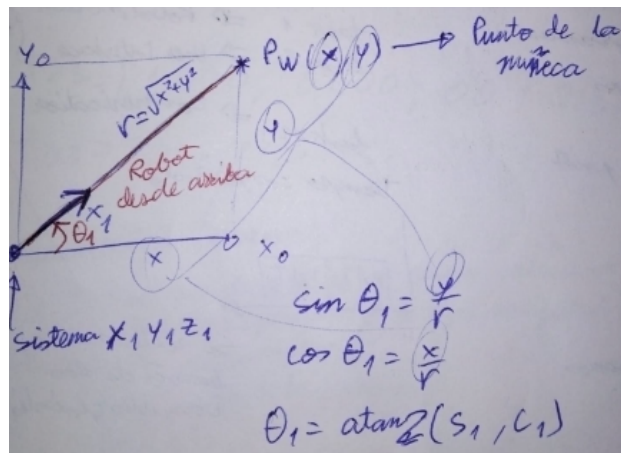 Y₀
Pw (x, y) → Punto de la
muñeca
r=√x²+y²
y
Robot
desde arriba
x₁
θ₁
x
x₀
sistema x₁ y₁ z₁
sin θ₁ = y/r
cos θ₁ = x/r
θ₁ = atan2(s₁, c₁)